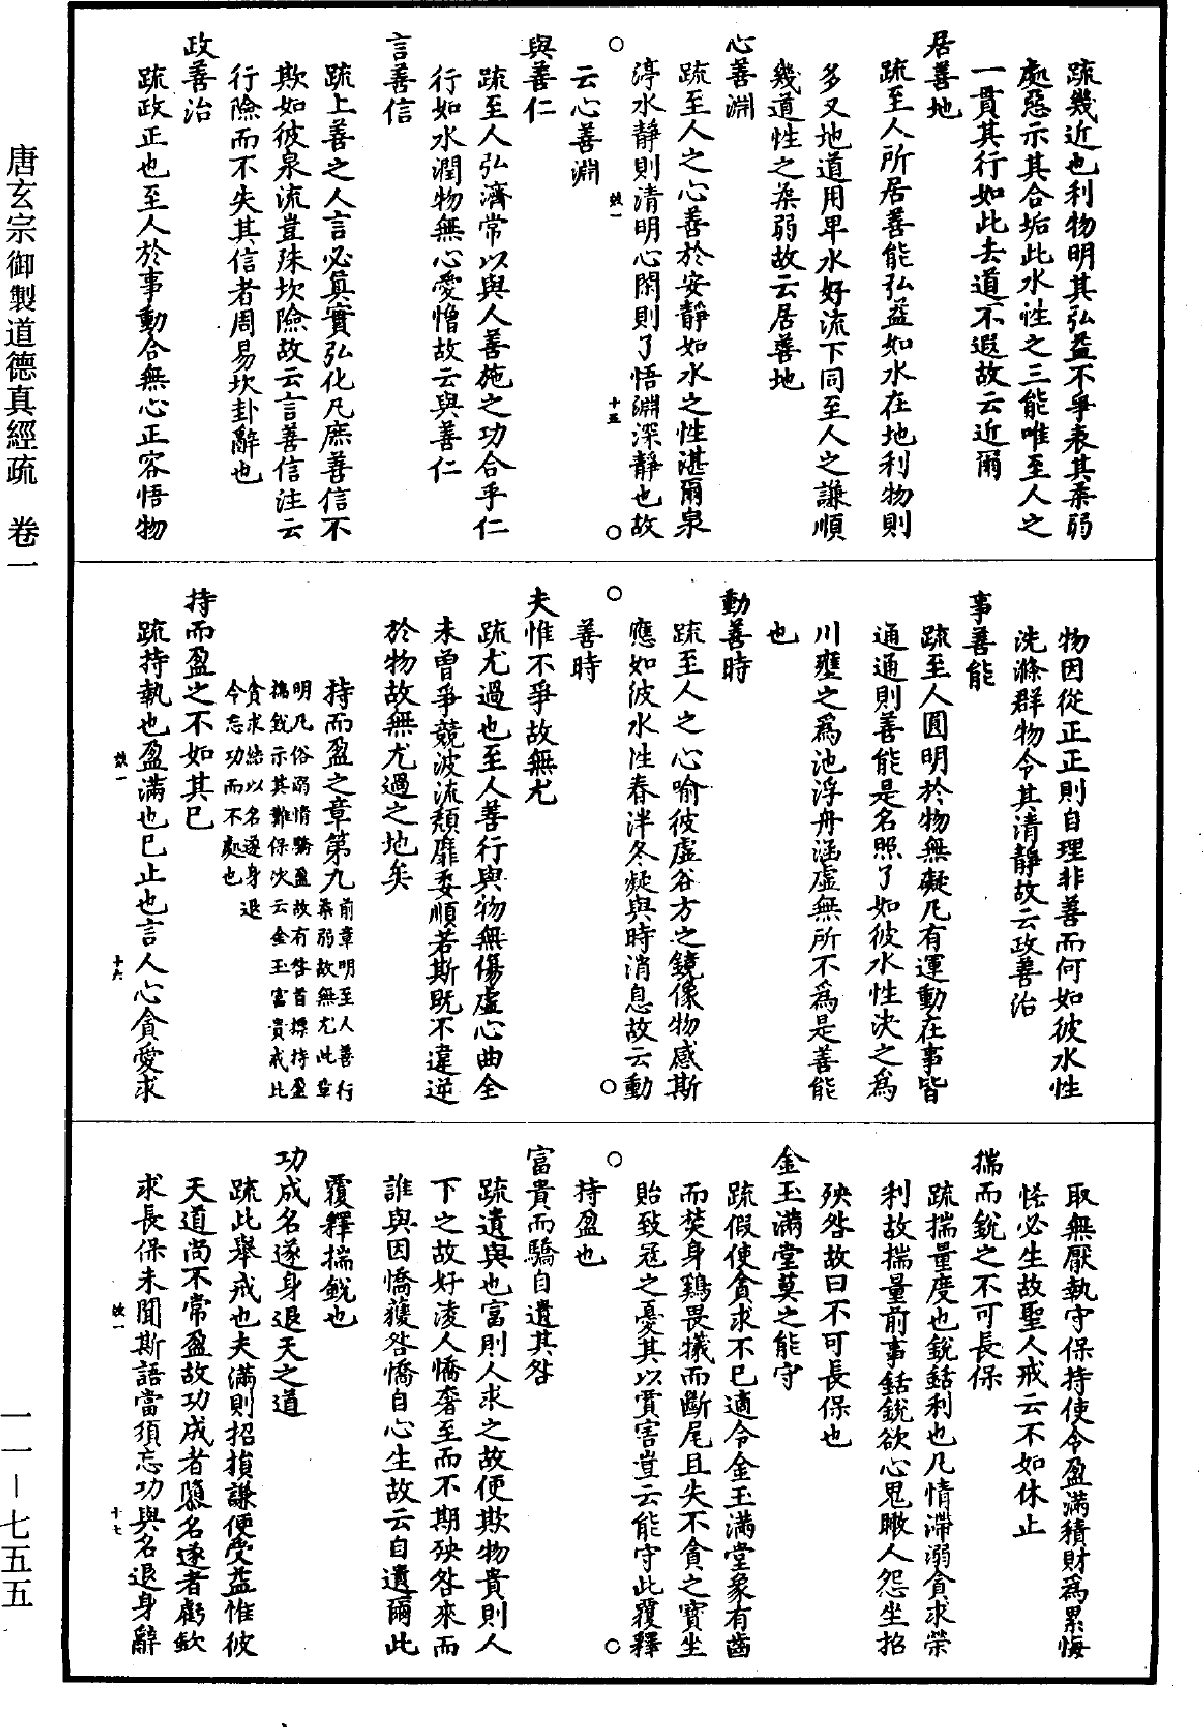 疏幾近也利物明其弘益不爭表其柔弱
處惡示其合垢此水性之三能唯至人之
一貫其行如此去道不遐故云近爾
居善地
疏至人所居善能弘益如水在地利物則
多又地道用卑水好流下同至人之謙順
幾道性之柔弱故云居善地
心善淵
疏至人之心善於安靜如水之性湛爾泉
渟水靜則清明心閑則了悟淵深靜也故
效一 十五
云心善淵
與善仁
疏至人弘濟常以與人善施之功合乎仁
行如水潤物無心愛憎故云與善仁
言善信
疏上善之人言必真實弘化凡庶善信不
欺如彼泉流豈殊坎險故云言善信注云
行險而不失其信者周易坎卦辭也
政善治
疏政正也至人於事動合無心正容悟物
物因從正正則自理非善而何如彼水性
洗滌群物令其清靜故云政善治
事善能
疏至人圓明於物無礙凡有運動在事皆
通通則善能是名照了如彼水性決之為
川壅之為池浮舟涵虛無所不為是善能
也
動善時
疏至人之心喻彼虛谷方之鏡像物感斯
應如彼水性春泮冬凝與時消息故云動
善時
夫惟不爭故無尤
疏尤過也至人善行與物無傷虛心曲全
未曾爭競波流頹靡委順若斯既不違逆
於物故無尤過之地矣
持而盈之章第九前章明至人善行
柔弱故無尤此章
明凡俗溺情驕盈故有咎首摽持盈
揣銳示其難保次云金玉富貴戒此
貪求結以名遂身退
令忘功而不處也
持而盈之不如其已
疏持執也盈滿也已止也言人心貪愛求
效一 十六
取無厭執守保持使令盈滿積財為累悔
恡必生故聖人戒云不如休止
揣而銳之不可長保
疏揣量度也銳銛利也凡情滯溺貪求榮
利故揣量前事銛銳欲心鬼瞰人怨坐招
殃咎故曰不可長保也
金玉滿堂莫之能守
疏假使貪求不已適令金玉滿堂象有齒
而焚身鷄畏犧而斷尾且失不貪之寶坐
貽致寇之憂其以賈害豈云能守此覆釋
持盈也
富貴而驕自遺其咎
疏遺與也富則人求之故便欺物貴則人
下之故好淩人憍奢至而不期殃咎來而
誰與因憍獲咎憍自心生故云自遺爾此
覆釋揣銳也
功成名遂身退天之道
疏此舉戒也夫滿則招損謙便受益惟彼
天道尚不常盈故功成者隳名遂者虧欽
求長保未聞斯語當須忘功與名退身辭
效一 十七
唐玄宗御製道德真經疏 卷一
一一－七五五